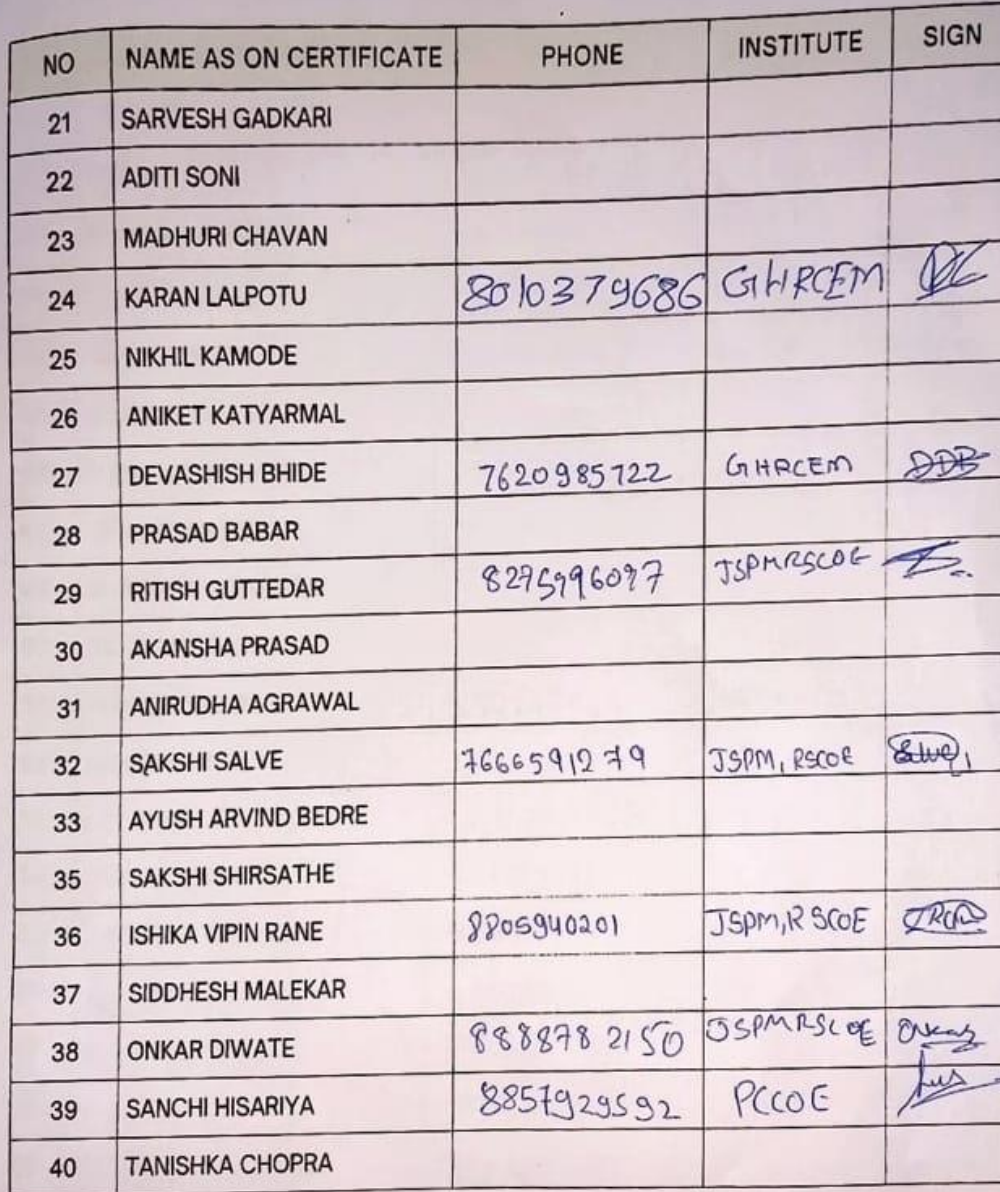 NO NAME AS ON CERTIFICATE PHONE INSTITUTE SIGN
21 SARVESH GADKARI
22 ADITI SONI
23 MADHURI CHAVAN
24 KARAN LALPOTU 8010379686 GHRCEM
25 NIKHIL KAMODE
26 ANIKET KATYARMAL
27 DEVASHISH BHIDE 7620985722 GHRCEM DDB
28 PRASAD BABAR
29 RITISH GUTTEDAR JSPMRSCOE
30 AKANSHA PRASAD
31 ANIRUDHA AGRAWAL
32 SAKSHI SALVE 7666591279 JSPM, RSCOE
33 AYUSH ARVIND BEDRE
35 SAKSHI SHIRSATHE
36 ISHIKA VIPIN RANE 8805940201 JSPM, RSCOE
37 SIDDHESH MALEKAR
38 ONKAR DIWATE 888878 2150 JSPMRSCOE Onkar
39 SANCHI HISARIYA 8857929592 PCCOE
40 TANISHKA CHOPRA